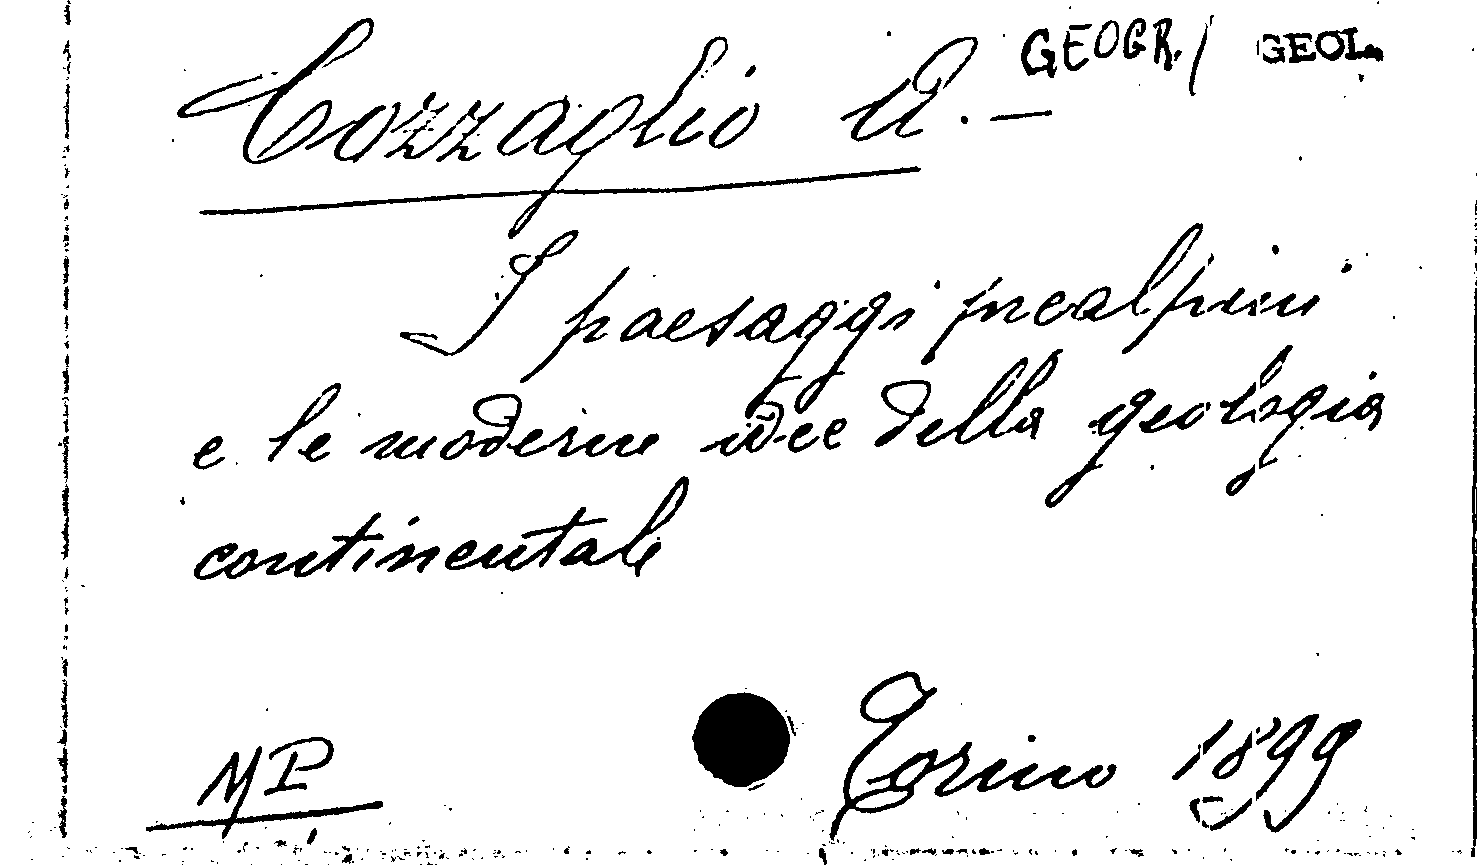 Cozzaglio A. — GEOGR. / GEOL.
I paesaggi prealpini
e le moderne idee della geologia
continentale
MP Torino 1899